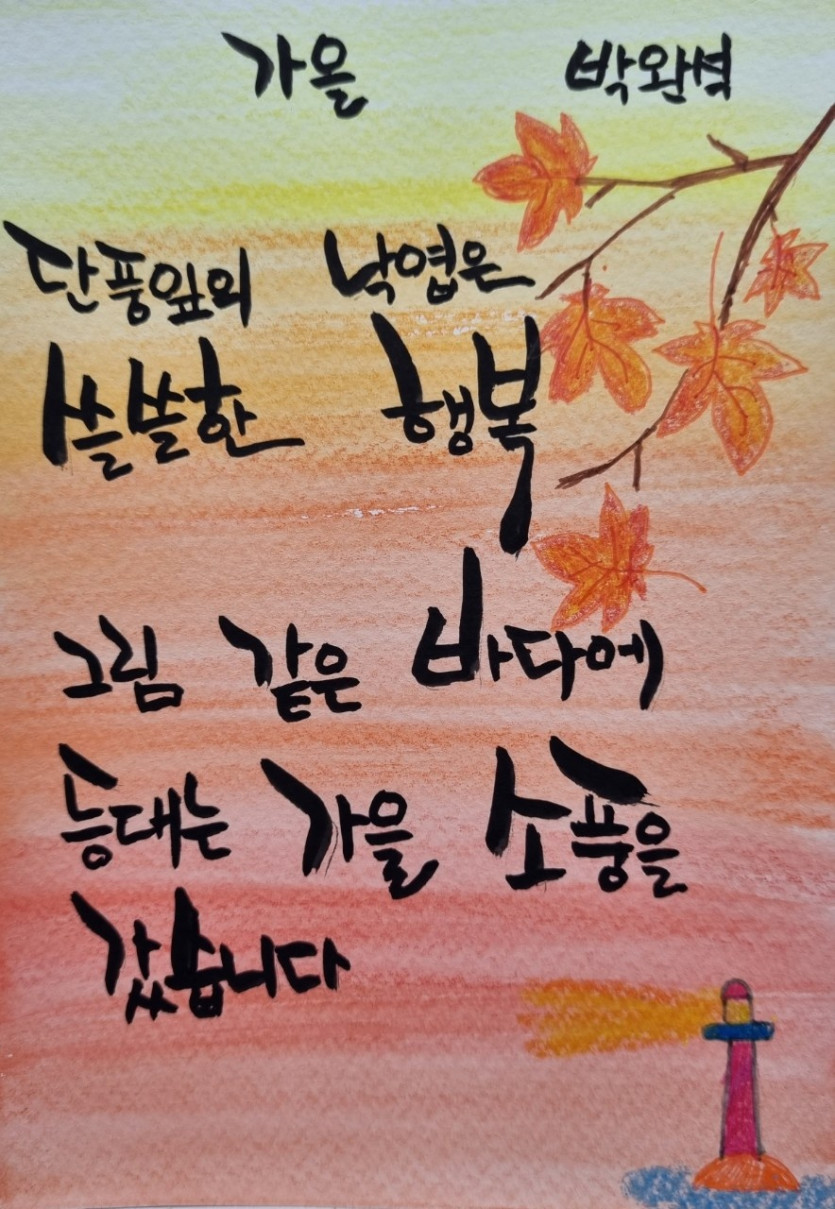 가을 박완석
단풍잎의 낙엽은
쓸쓸한 행복
그림 같은 바다에
등대는 가을 소풍을
갔습니다